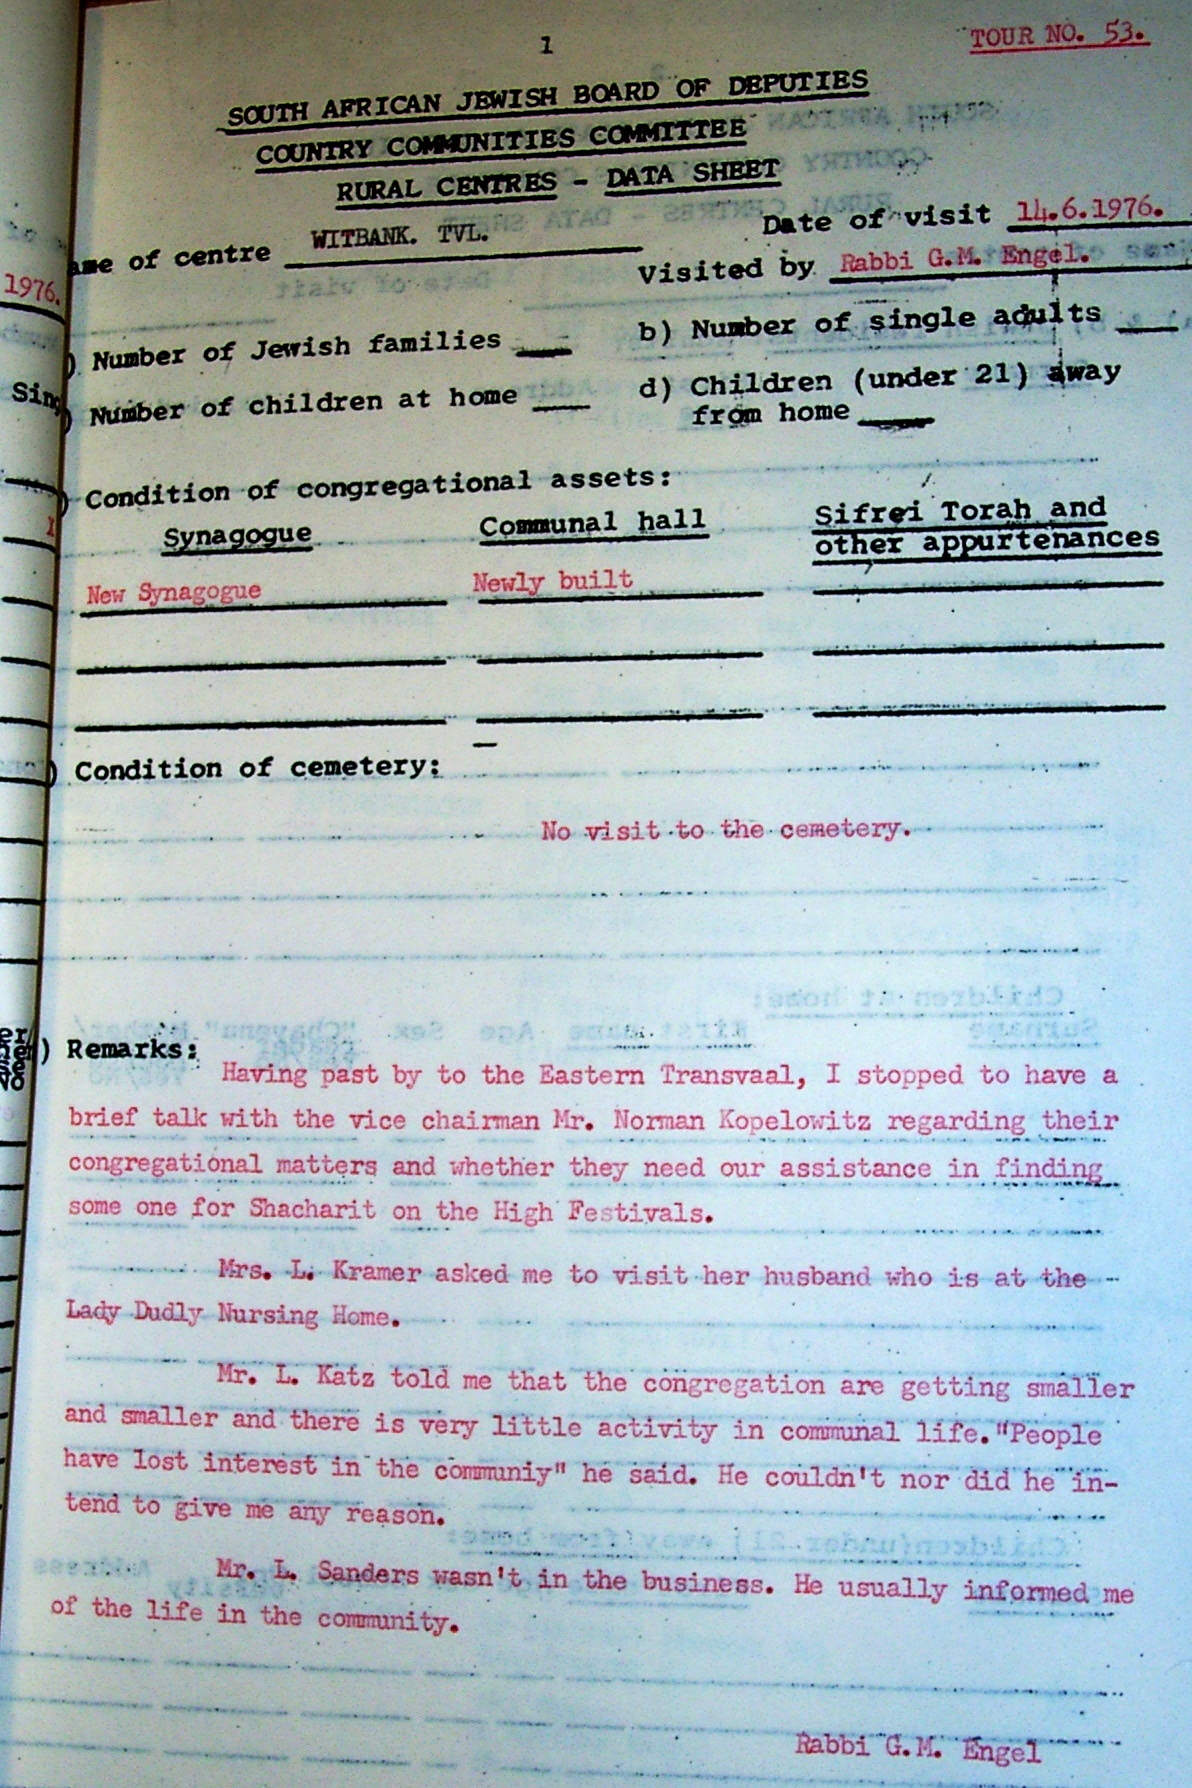 1
TOUR NO. 53.
SOUTH AFRICAN JEWISH BOARD OF DEPUTIES
COUNTRY COMMUNITIES COMMITTEE
RURAL CENTRES - DATA SHEET
ame of centre WITBANK. TVL.
Date of visit 14.6.1976.
Visited by Rabbi G.M. Engel.
1976.
) Number of Jewish families
b) Number of single adults
Sing
) Number of children at home
d) Children (under 21) away
from home
) Condition of congregational assets:
Synagogue Communal hall Sifrei Torah and
other appurtenances
New Synagogue Newly built
) Condition of cemetery: -
No visit to the cemetery.
) Remarks:
Having past by to the Eastern Transvaal, I stopped to have a
brief talk with the vice chairman Mr. Norman Kopelowitz regarding their
congregational matters and whether they need our assistance in finding
some one for Shacharit on the High Festivals.
Mrs. L. Kramer asked me to visit her husband who is at the
Lady Dudly Nursing Home.
Mr. L. Katz told me that the congregation are getting smaller
and smaller and there is very little activity in communal life. "People
have lost interest in the communiy" he said. He couldn't nor did he in-
tend to give me any reason.
Mr. L. Sanders wasn't in the business. He usually informed me
of the life in the community.
Rabbi G.M. Engel